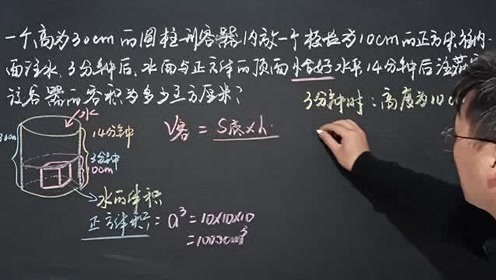 一个高为30cm的圆柱形容器内放一个棱长为10cm的正方体,往内
面注水,3分钟后,水面与正方体的顶面恰好水平,14分钟后注满容
该容器的容积为多少立方厘米?
3分钟时:高度为10c
V容=S底×h
水
14分钟
3分钟
10cm
水的体积
正方体体积:a³=10×10×10
=1000cm³